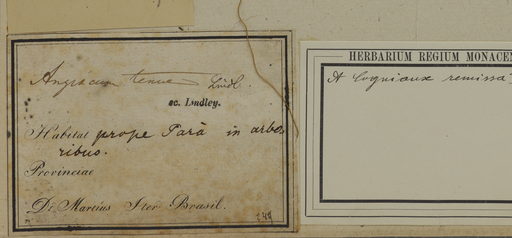 Angraecum tenue Lindl.
sc. Lindley.
Habitat prope Parà in arbo
ribus.
Provinciae
Dr. Martius Iter Brasil.
HERBARIUM REGIUM MONACEN
A Cogniaux remissa